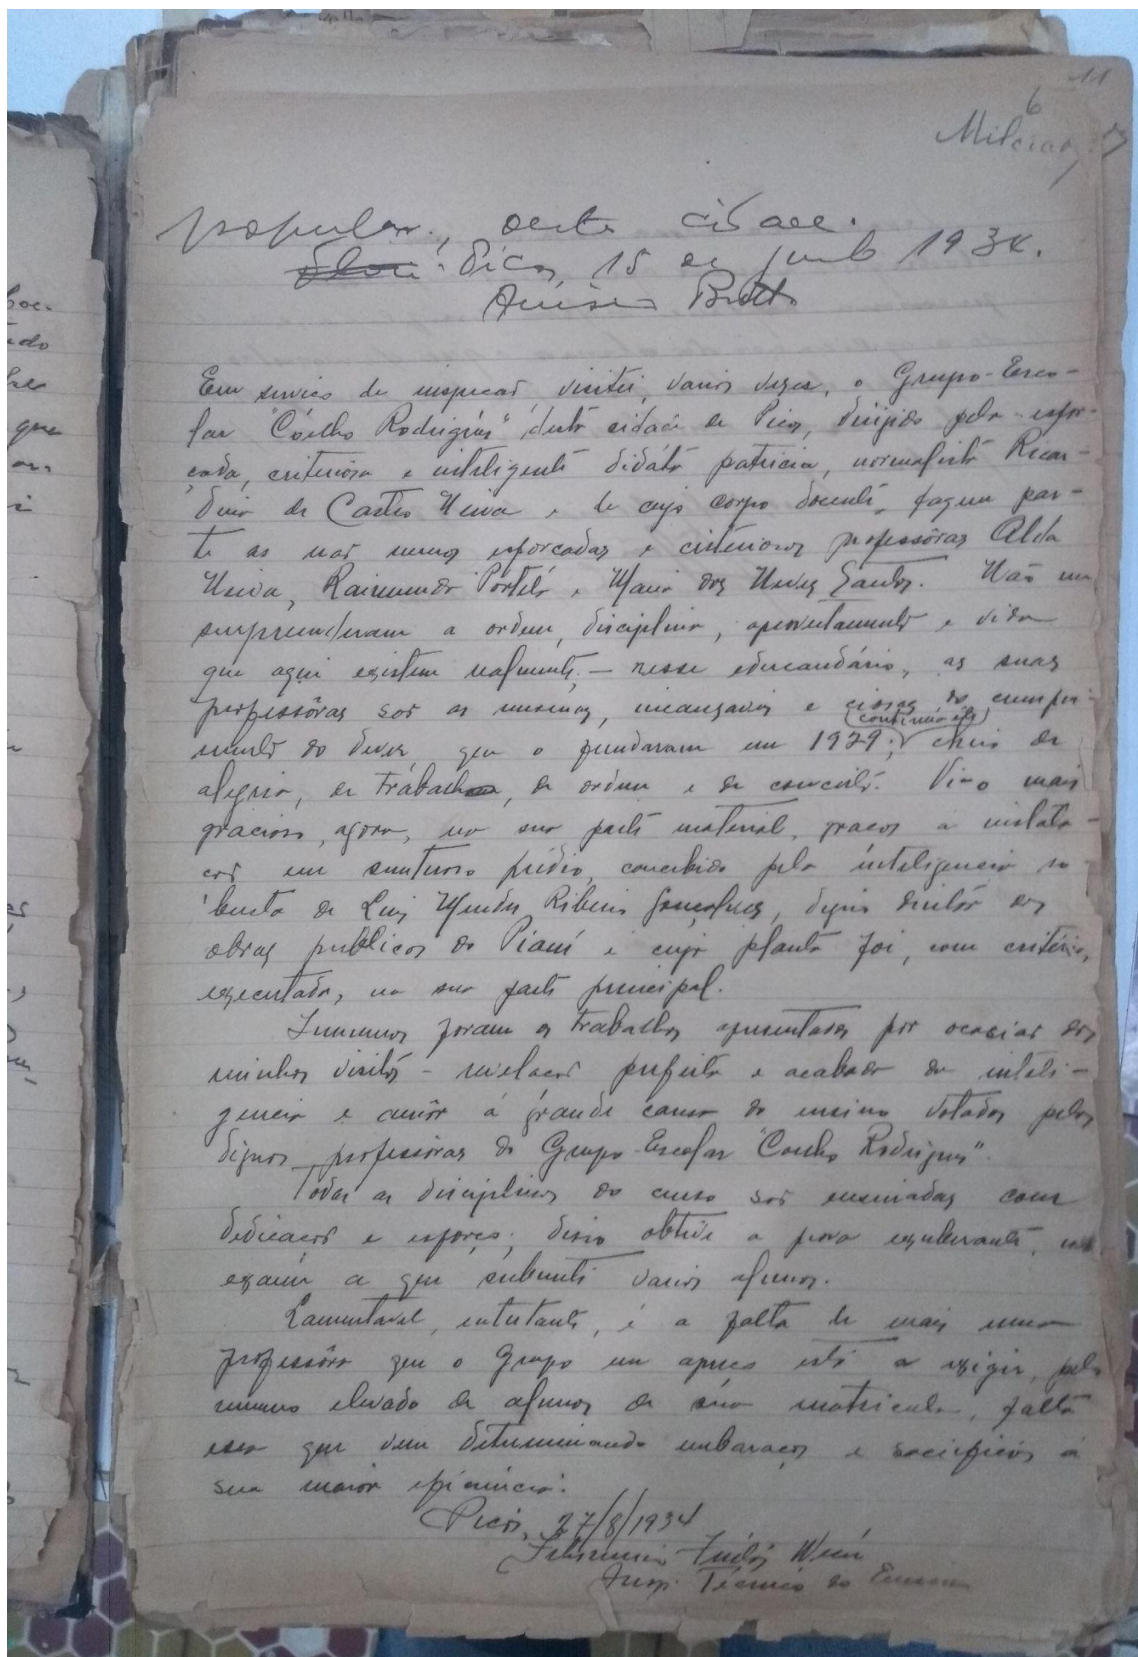 11
6
popular, desta cidade.
Picos, 15 de junho 1934.
Brito
Em serviço de inspeção, visitei, varias vezes, o Grupo-Esco-
lar "Coêlho Rodrigues" desta cidade de Picos, dirijido pela esfor-
çada, criteriosa e inteligente didáta patricia, normalista Ricar-
dina de Castro Neiva e de cujo corpo docente, fazem par-
te as não menos esforçadas e criteriosas professôras Alda
Neiva, Raimunda Portéla e Maria das Neves Santos. Não me
surpreenderam a ordem, disciplina, aproveitamento e vida
que aqui existem realmente; – nesse educandário, as suas
professôras são as mesmas, incansaveis e ciosas do cumpri-
mento do dever, que o fundaram em 1929; (continúa ele) cheio de
alegria, de trabalho, de ordem e de conceito. Vi-o mais
gracioso, agora, na sua parte material, graças a instala-
ção em suntuoso prédio, concebido pela inteligencia ro
busta de Luis Mendes Ribeiro Gonçalves, digno diretôr das
obras publicas do Piauí e cuja planta foi, com critério,
executada, na sua parte principal.
Inumeros foram os trabalhos apresentados por ocasião das
minhas visitas – revelação perfeita e acabada da inteli-
gencia e amôr á grande causa do ensino votados pelas
dignas professôras do Grupo-Escolar "Coelho Rodrigues".
Todas as disciplinas do curso são ensinadas com
dedicação e esforço; disso obtive a prova exuberante, no
exame a que submeti varios alunos.
Lamentavel, entretanto, é a falta de mais uma
professôra que o Grupo em apreço está a exigir, pelo
numero elevado de alunos de sua matricula, falta
essa que vem determinando embaraços e sacrificios á
sua maior eficiencia.
Picos, 27/8/1934
Insp. Técnico do Ensino